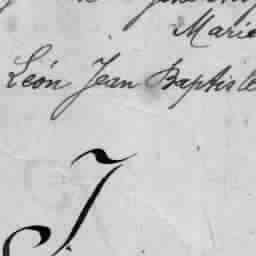 Marie
Léon Jean Baptiste
J